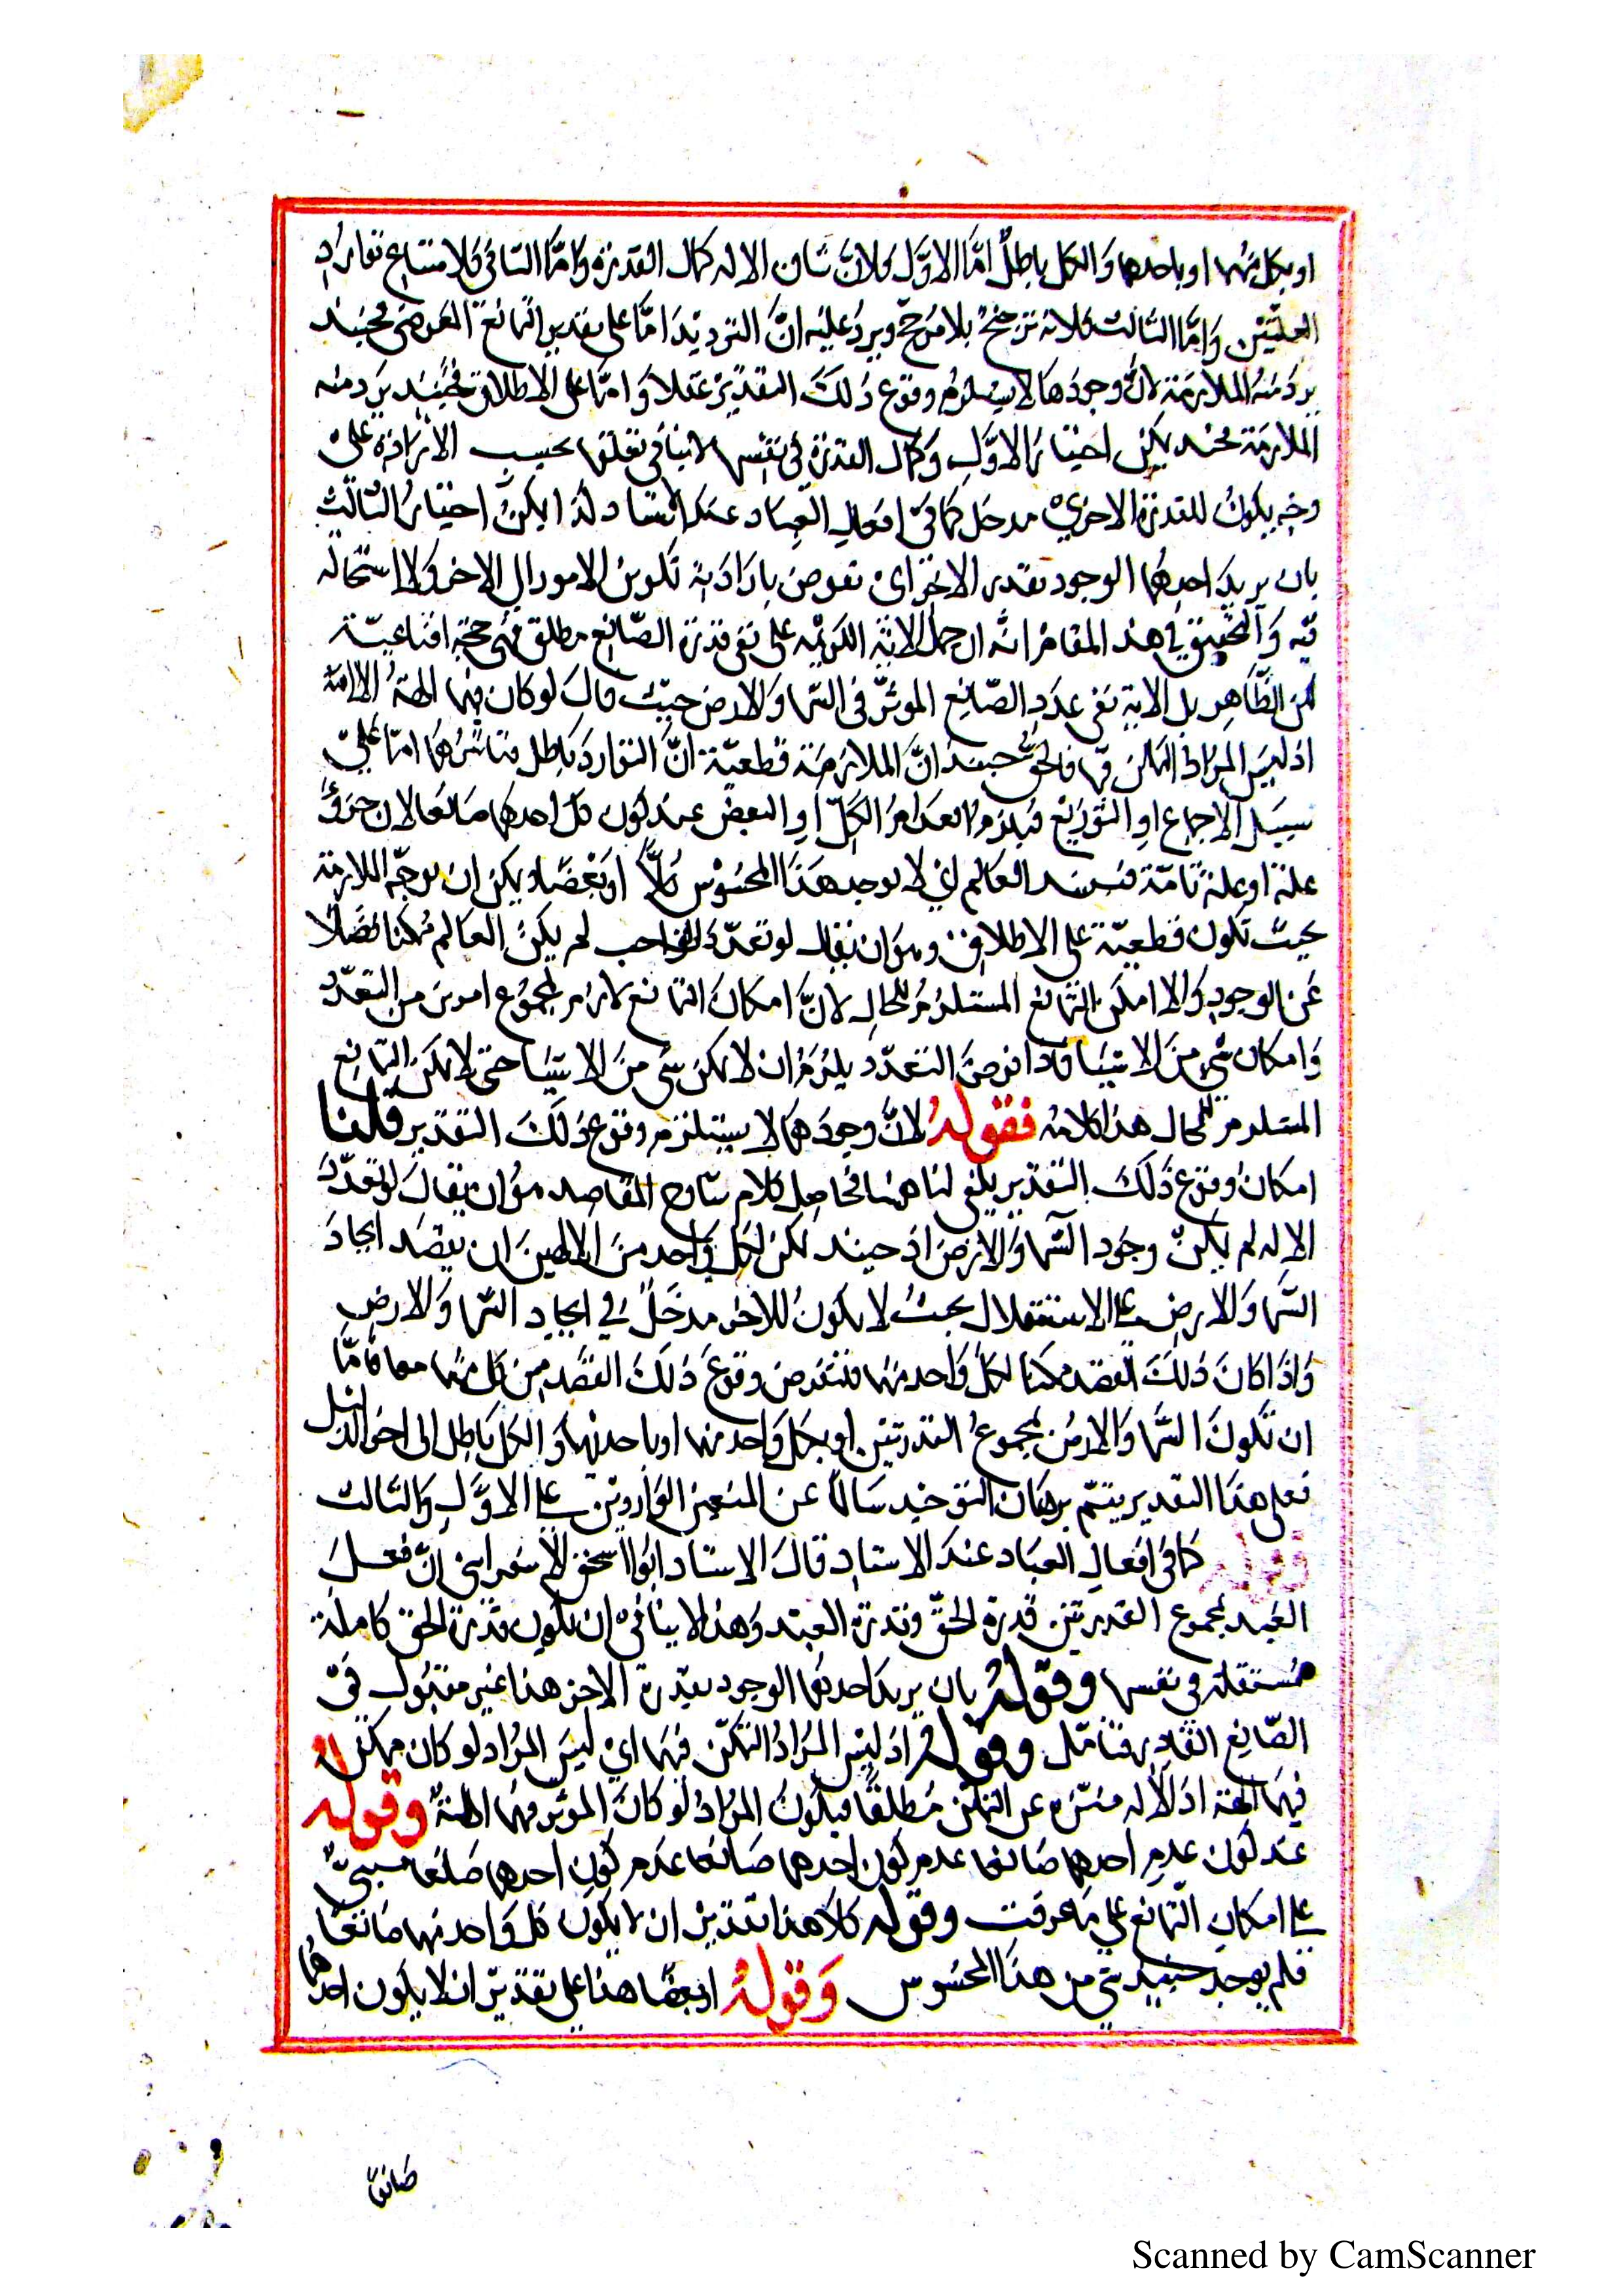 او بكل منهما او باحدهما وَالكل باطلٌ امَّا الاوَّل فلانَّ شان الاله كمال القدرة وَامَّا الثانى فلامتناع توارد
العلّتَيْن وَامَّا الثالث فلانه ترجّحٌ بلا مرَجّح ويردُ عليه انَّ الترديدَ امَّا على تقدير التّمانع الفرضى فحينئذ
يردُ منعُ الملازمَة لانَّ وجودَهمَا لا يستلزمُ وقوع ذلكَ التقدير عقلاً وَامّا على الاطلاق فحينئذ يرَد منع
الملازمَة فحينئذ يمكن اختيارُ الاوَّلِ وَكمال القدرة فى نفسها لا ينافى تعلقها بحسبِ الارَادَة على
وجه يكونُ للقدرة الاخرى مدخل كمَا فى افعالِ العِبَاد عندَ الاستاد لذا يمكنُ اختيارُ الثالث
بان يريدَ احدهُما الوجود بقدرة الاخر اى يفوض بارادته تكوين الامور الى الاخر ولا استحالة
فيه وَالتحقيق فى هذا المقام انه ان حمل الاية الكريمة على نفى قدرة الصّانع مطلق فهى حجة اقناعيّة
لمن الظَّاهِر بل الاية نفى عدَدِ الصّانِع الموثّر فى السّما وَالارض حيث قالَ لو كان فيهما الهةٌ الا الله
اذ ليسَ المرَاد التمكن فيها فالحق حينئذ انَّ الملازمَة قطعيّة انَّ التوارد بَاطل فتاثيرُهُمَا امّا علىٰ
سبيل الاجماع او التوزيع فيلزم انعدامُ الكلّ او البعض عند كون كل احدهما صَانعا لانه جزؤُ
علة او علة تامّة فيفسد العَالم اى لا يوجد هَذَا المحسُوس كلاًّ او بَعْضا ويمكن ان توجّه الملازمة
بحيث تكون قطعيّة على الاطلاق وهو ان يقال لو تعدّدَ الواجب لم يكنِ العَالم مُمكنا فضَلاً
عَن الوجود وَالا امكن التّمانع المستلزمُ للمحالِ لانَّ امكانَ التّمانع لازم لمجموع امرين من التعدّد
وَامكان شئ من الاشيَا فاذا فرضَ التعدّد يلزَمُ ان لا يمكن شى منَ الاشيَا حتى لا يمكنَ التّمانع
المستلزم للمحال هذا كلامه فقولهُ لانَّ وجودَهمَا لا يستلزم وقوعَ ذلكَ التقدير قلنا
امكانُ وقوع ذَلكَ التقدير يكفى لنا ههنا فحاصل كلام شارح المقاصد هوَ ان يقالَ لو تعدّدَ
الاله لم يكنْ وجود السّما وَالارضَ اذ حينئذ يمكنُ لكل وَاحد منَ الالهينَ ان يقصد ايجادَ
السّما وَالارض على الاستقلال بحيثُ لا يكونُ للاخر مدخَلٌ فى ايجادِ السّما وَالارض
وَاذا كانَ ذلكَ القصد ممكنا لكل وَاحد منهما فنفرض وقوعَ ذلكَ القصد من كل منهما معا فامّا
ان تكونَ السَّما وَالارضُ بمجموع القدرتين او بكل وَاحد منهما او باحدهما وَالكل بَاطل الى اخر الدليل
فعلى هذا التقدير يتم برهَان التوحيد سَالمًا عن المنعين الوَاردين على الاوَّلِ وَالثالث
وقوله كما فى افعالِ العبَاد عندَ الاستاد قالَ الاستاد ابُو اسحق الاسفراينى انّ فعلَ
العَبد بمجموع القدرتين قدرة الحقّ وقدرة العبَد وَهذا لا ينافى ان تكون قدرة الحق كاملة
مُستقلة فى نفسها وقولهُ بان يريدَ احدهُما الوجود بقدرة الاخر هذا غير مقبُول فى
الصّانِع القادِر فتامّل وقولهُ اذ ليسَ المرَادُ التمكّن فيهَما اىْ ليسَ المرَاد لو كان ممكن
فيهَما الهة اذ الاله منزه عن التمكن مُطلقًا فيكونُ المرَادُ لو كانَ الموثر فيهما الهةٌ وقوله
عند كون عدم احدهما صَانعا عدم كون احدهما صَانعا عدَم كون احدهما صَانعا مبنىٌّ
على امكانِ التّمانع على مَا عرفت وقوله كلاًّ هذا تقدير ان لا يكون كل وَاحد منهما صَانعًا
فلم يوجد حينئذ شئ من هذا المحسُوس وَقولهُ او بعضًا هذا على تقديرِ ان لا يكون احدهُما
صَانعًا
Scanned by CamScanner